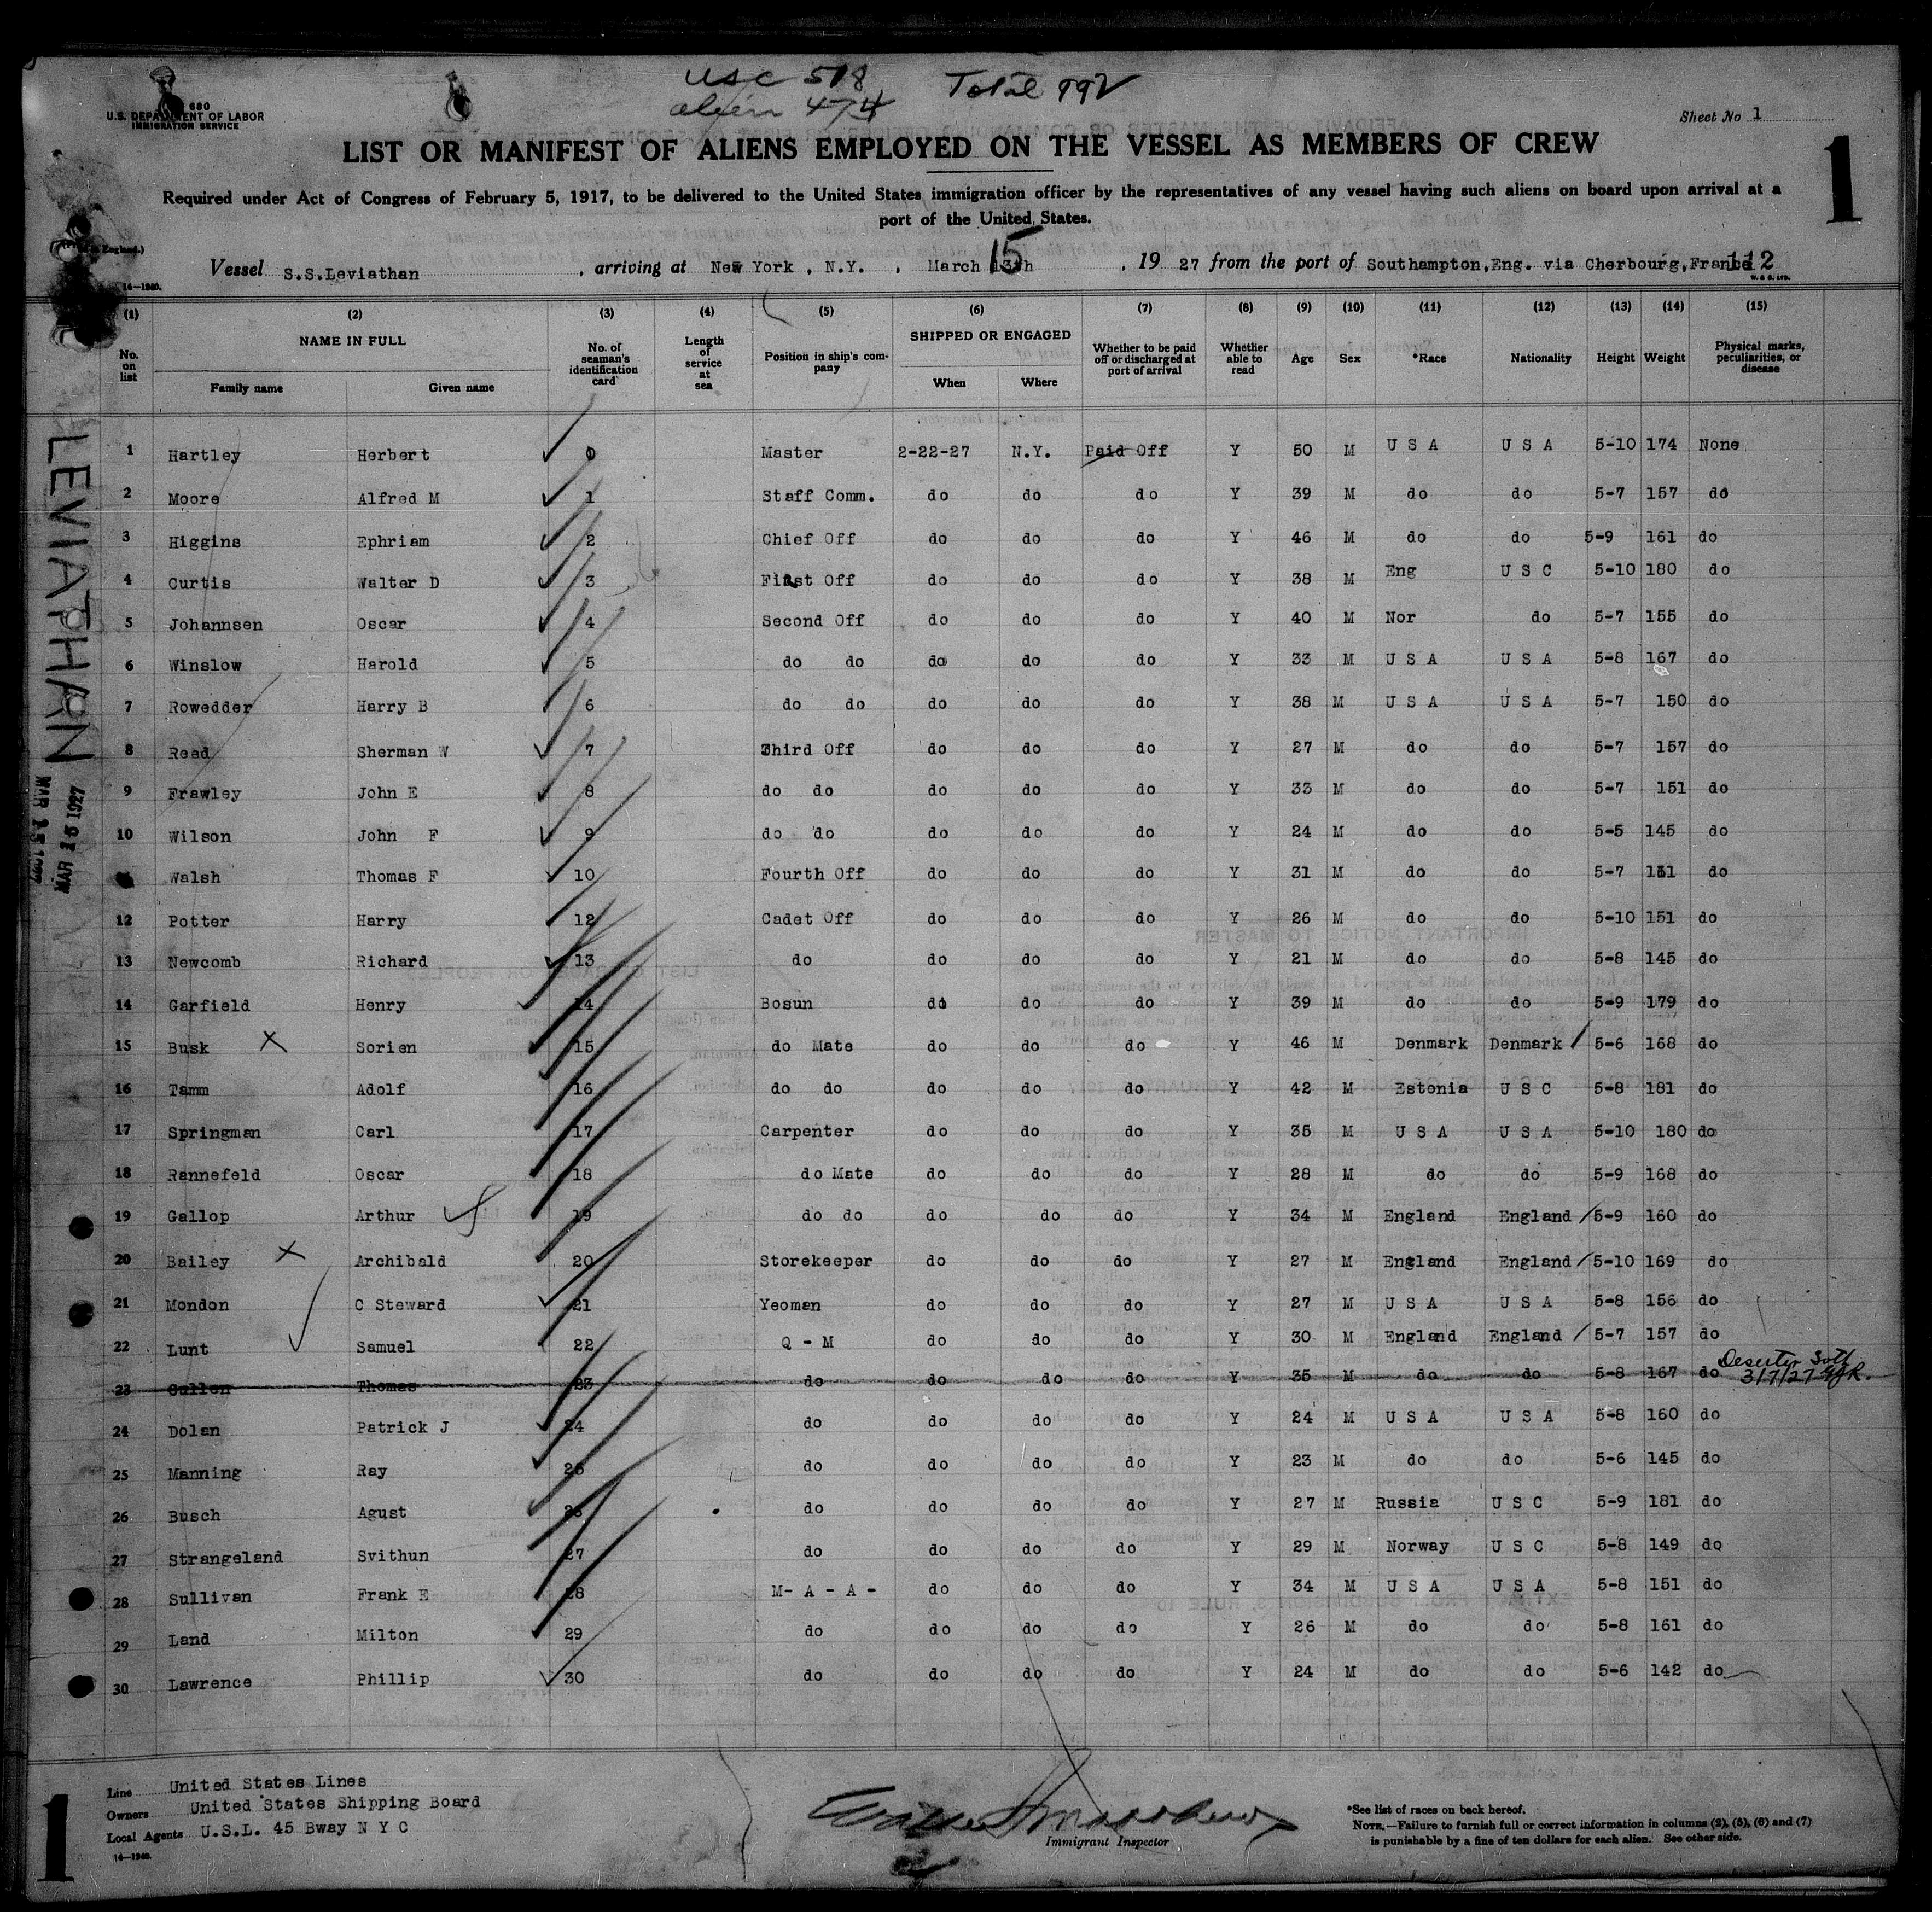 usc 518 Total 992
alien 474
680
U.S. DEPARTMENT OF LABOR
IMMIGRATION SERVICE
Sheet No 1
LIST OR MANIFEST OF ALIENS EMPLOYED ON THE VESSEL AS MEMBERS OF CREW
1
Required under Act of Congress of February 5, 1917, to be delivered to the United States immigration officer by the representatives of any vessel having such aliens on board upon arrival at a
port of the United States.
Vessel S.S.Leviathan, arriving at New York, N.Y., March 15 13th, 19 27 from the port of Southampton,Eng. via Cherbourg,France 112
14—1240.
(1) (2) (3) (4) (5) (6) (7) (8) (9) (10) (11) (12) (13) (14) (15)
No. on list NAME IN FULL Family name Given name No. of seaman's identification card Length of service at sea Position in ship's company SHIPPED OR ENGAGED When Where Whether to be paid off or discharged at port of arrival Whether able to read Age Sex *Race Nationality Height Weight Physical marks, peculiarities, or disease
1 Hartley Herbert 0 Master 2-22-27 N.Y. Paid Off Y 50 M U S A U S A 5-10 174 None
2 Moore Alfred M 1 Staff Comm. do do do Y 39 M do do 5-7 157 do
3 Higgins Ephriam 2 Chief Off do do do Y 46 M do do 5-9 161 do
4 Curtis Walter D 3 First Off do do do Y 38 M Eng U S C 5-10 180 do
5 Johannsen Oscar 4 Second Off do do do Y 40 M Nor do 5-7 155 do
6 Winslow Harold 5 do do do do do Y 33 M U S A U S A 5-8 167 do
7 Rowedder Harry B 6 do do do do do Y 38 M U S A U S A 5-7 150 do
8 Read Sherman W 7 Third Off do do do Y 27 M do do 5-7 157 do
9 Frawley John E 8 do do do do do Y 33 M do do 5-7 151 do
10 Wilson John F 9 do do do do do Y 24 M do do 5-5 145 do
Walsh Thomas F 10 Fourth Off do do do Y 31 M do do 5-7 do
12 Potter Harry 12 Cadet Off do do do Y 26 M do do 5-10 151 do
13 Newcomb Richard 13 do do do do Y 21 M do do 5-8 145 do
14 Garfield Henry 14 Bosun do do do Y 39 M do do 5-9 179 do
15 Busk X Sorien 15 do Mate do do do Y 46 M Denmark Denmark 5-6 168 do
16 Tamm Adolf 16 do do do do do Y 42 M Estonia U S C 5-8 181 do
17 Springman Carl 17 Carpenter do do do Y 35 M U S A U S A 5-10 180 do
18 Rannefeld Oscar 18 do Mate do do do Y 28 M do do 5-9 168 do
19 Gallop Arthur 19 do do do do do Y 34 M England England 5-9 160 do
20 Bailey X Archibald 20 Storekeeper do do do Y 27 M England England 5-10 169 do
21 Mondon C Steward 21 Yeoman do do do Y 27 M U S A U S A 5-8 156 do
22 Lunt Samuel 22 Q - M do do do Y 30 M England England 5-7 157 do
23 Cullen Thomas 23 do do do do Y 35 M do do 5-8 167 do Deserter Soth 3/7/27
24 Dolan Patrick J 24 do do do do Y 24 M U S A U S A 5-8 160 do
25 Manning Ray 25 do do do do Y 23 M do do 5-6 145 do
26 Busch Agust 26 do do do do Y 27 M Russia U S C 5-9 181 do
27 Strangeland Svithun 27 do do do do Y 29 M Norway U S C 5-8 149 do
28 Sullivan Frank E 28 M- A - A - do do do Y 34 M U S A U S A 5-8 151 do
29 Land Milton 29 do do do do Y 26 M do do 5-8 161 do
30 Lawrence Phillip 30 do do do do Y 24 M do do 5-6 142 do
LEVIATHAN
MAR 15 1927
Line United States Lines
Owners United States Shipping Board
Local Agents U.S.L. 45 Bway N Y C
14—1240.
1
Immigrant Inspector
*See list of races on back hereof.
NOTE.—Failure to furnish full or correct information in columns (2), (5), (6) and (7)
is punishable by a fine of ten dollars for each alien. See other side.